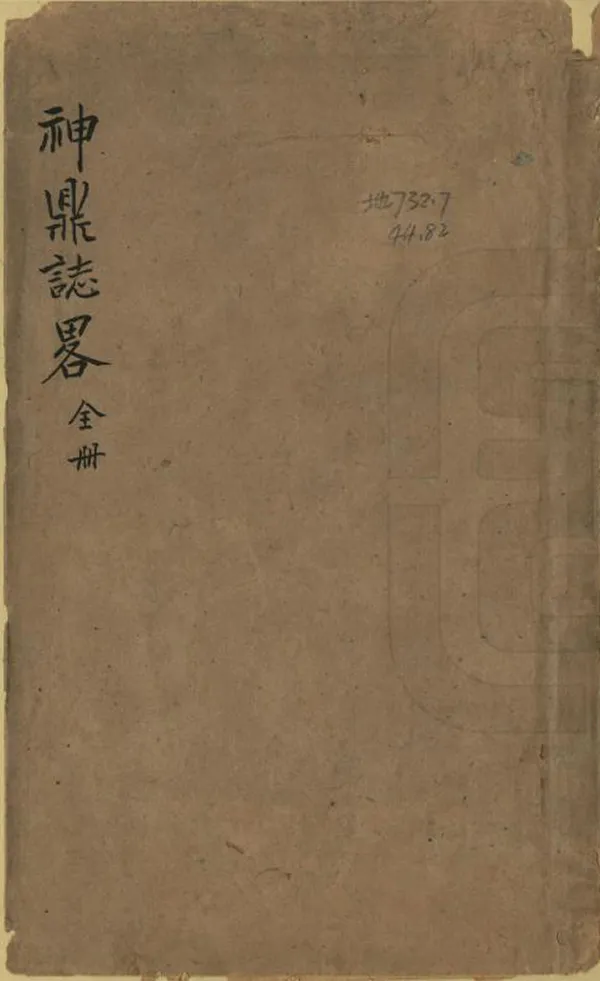 神鼎誌畧
全册
地732.7
44.82